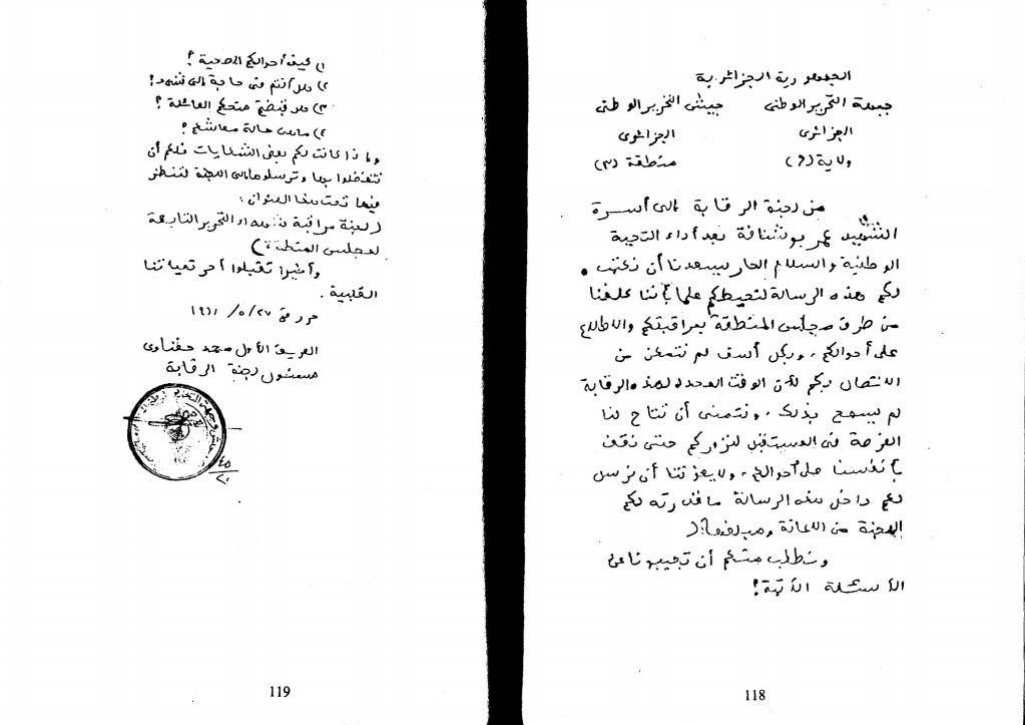 الجمهورية الجزائرية
جبهة التحرير الوطني جيش التحرير الوطني
الجزائري الجزائري
ولاية (٦) منطقة (٣)
من لجنة الرقابة إلى أسرة
الشهيد عمر بوشنافة بعد أداء التحية
الوطنية والسلام الحار يسعدنا أن نكتب
لكم هذه الرسالة لنحيطكم علما بأننا كلفنا
من طرف مجلس المنطقة بمراقبتكم والاطلاع
على أحوالكم، وبكل أسف لم نتمكن من
الاتصال بكم لأن الوقت المحدد لهذه الرقابة
لم يسمح بذلك، ونتمنى أن تتاح لنا
الفرصة في المستقبل لنزوركم حتى نقف
بأنفسنا على أحوالكم، ولا يفوتنا أن نرسل
لكم داخل هذه الرسالة ما قدرته لكم
اللجنة من الاعانة ومبلغها: (
ونطلب منكم أن تجيبونا على
الأسئلة الآتية:
118
١) كيف أحوالكم الصحية؟
٢) هل أنتم في حاجة إلى شيء؟
٣) هل قبضتم منحكم العائلة؟
٤) ما هي حالة معاشكم؟
وإذا كانت لكم بعض الشكايات فلكم أن
تتفضلوا بها وترسلوها إلى اللجنة لننظر
فيها تحت هذا العنوان:
(لجنة مراقبة شهداء التحرير التابعة
لمجلس المنطقة)
وأخيرا تقبلوا أحر تحياتنا
القلبية.
حرر في ٢٧/ ٥/ ١٩٦١
العريف الأول محمد حفناوي
مسئول لجنة الرقابة
119